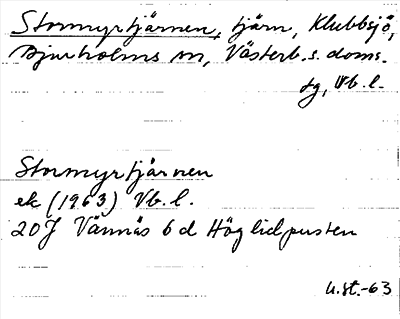 Stormyrtjärnen, tjärn, Klubbsjö,
Bjurholms sn, Västerb. s. doms.
sg, Vb. l.
Stormyrtjärnen
ek (1963) Vb. l.
20J Vännäs 6d Höglidpusten
u.st.-63